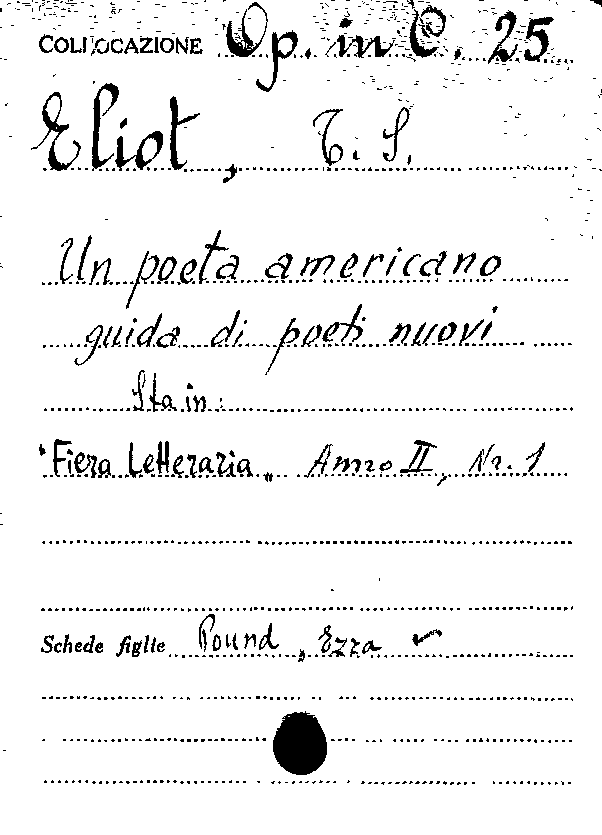 COLLOCAZIONE Op. in C. 25
Eliot, T. S.
Un poeta americano
guida di poeti nuovi
Sta in:
"Fiera Letteraria„ Anno II, Nr. 1
Schede figlie Pound, Ezra ✓